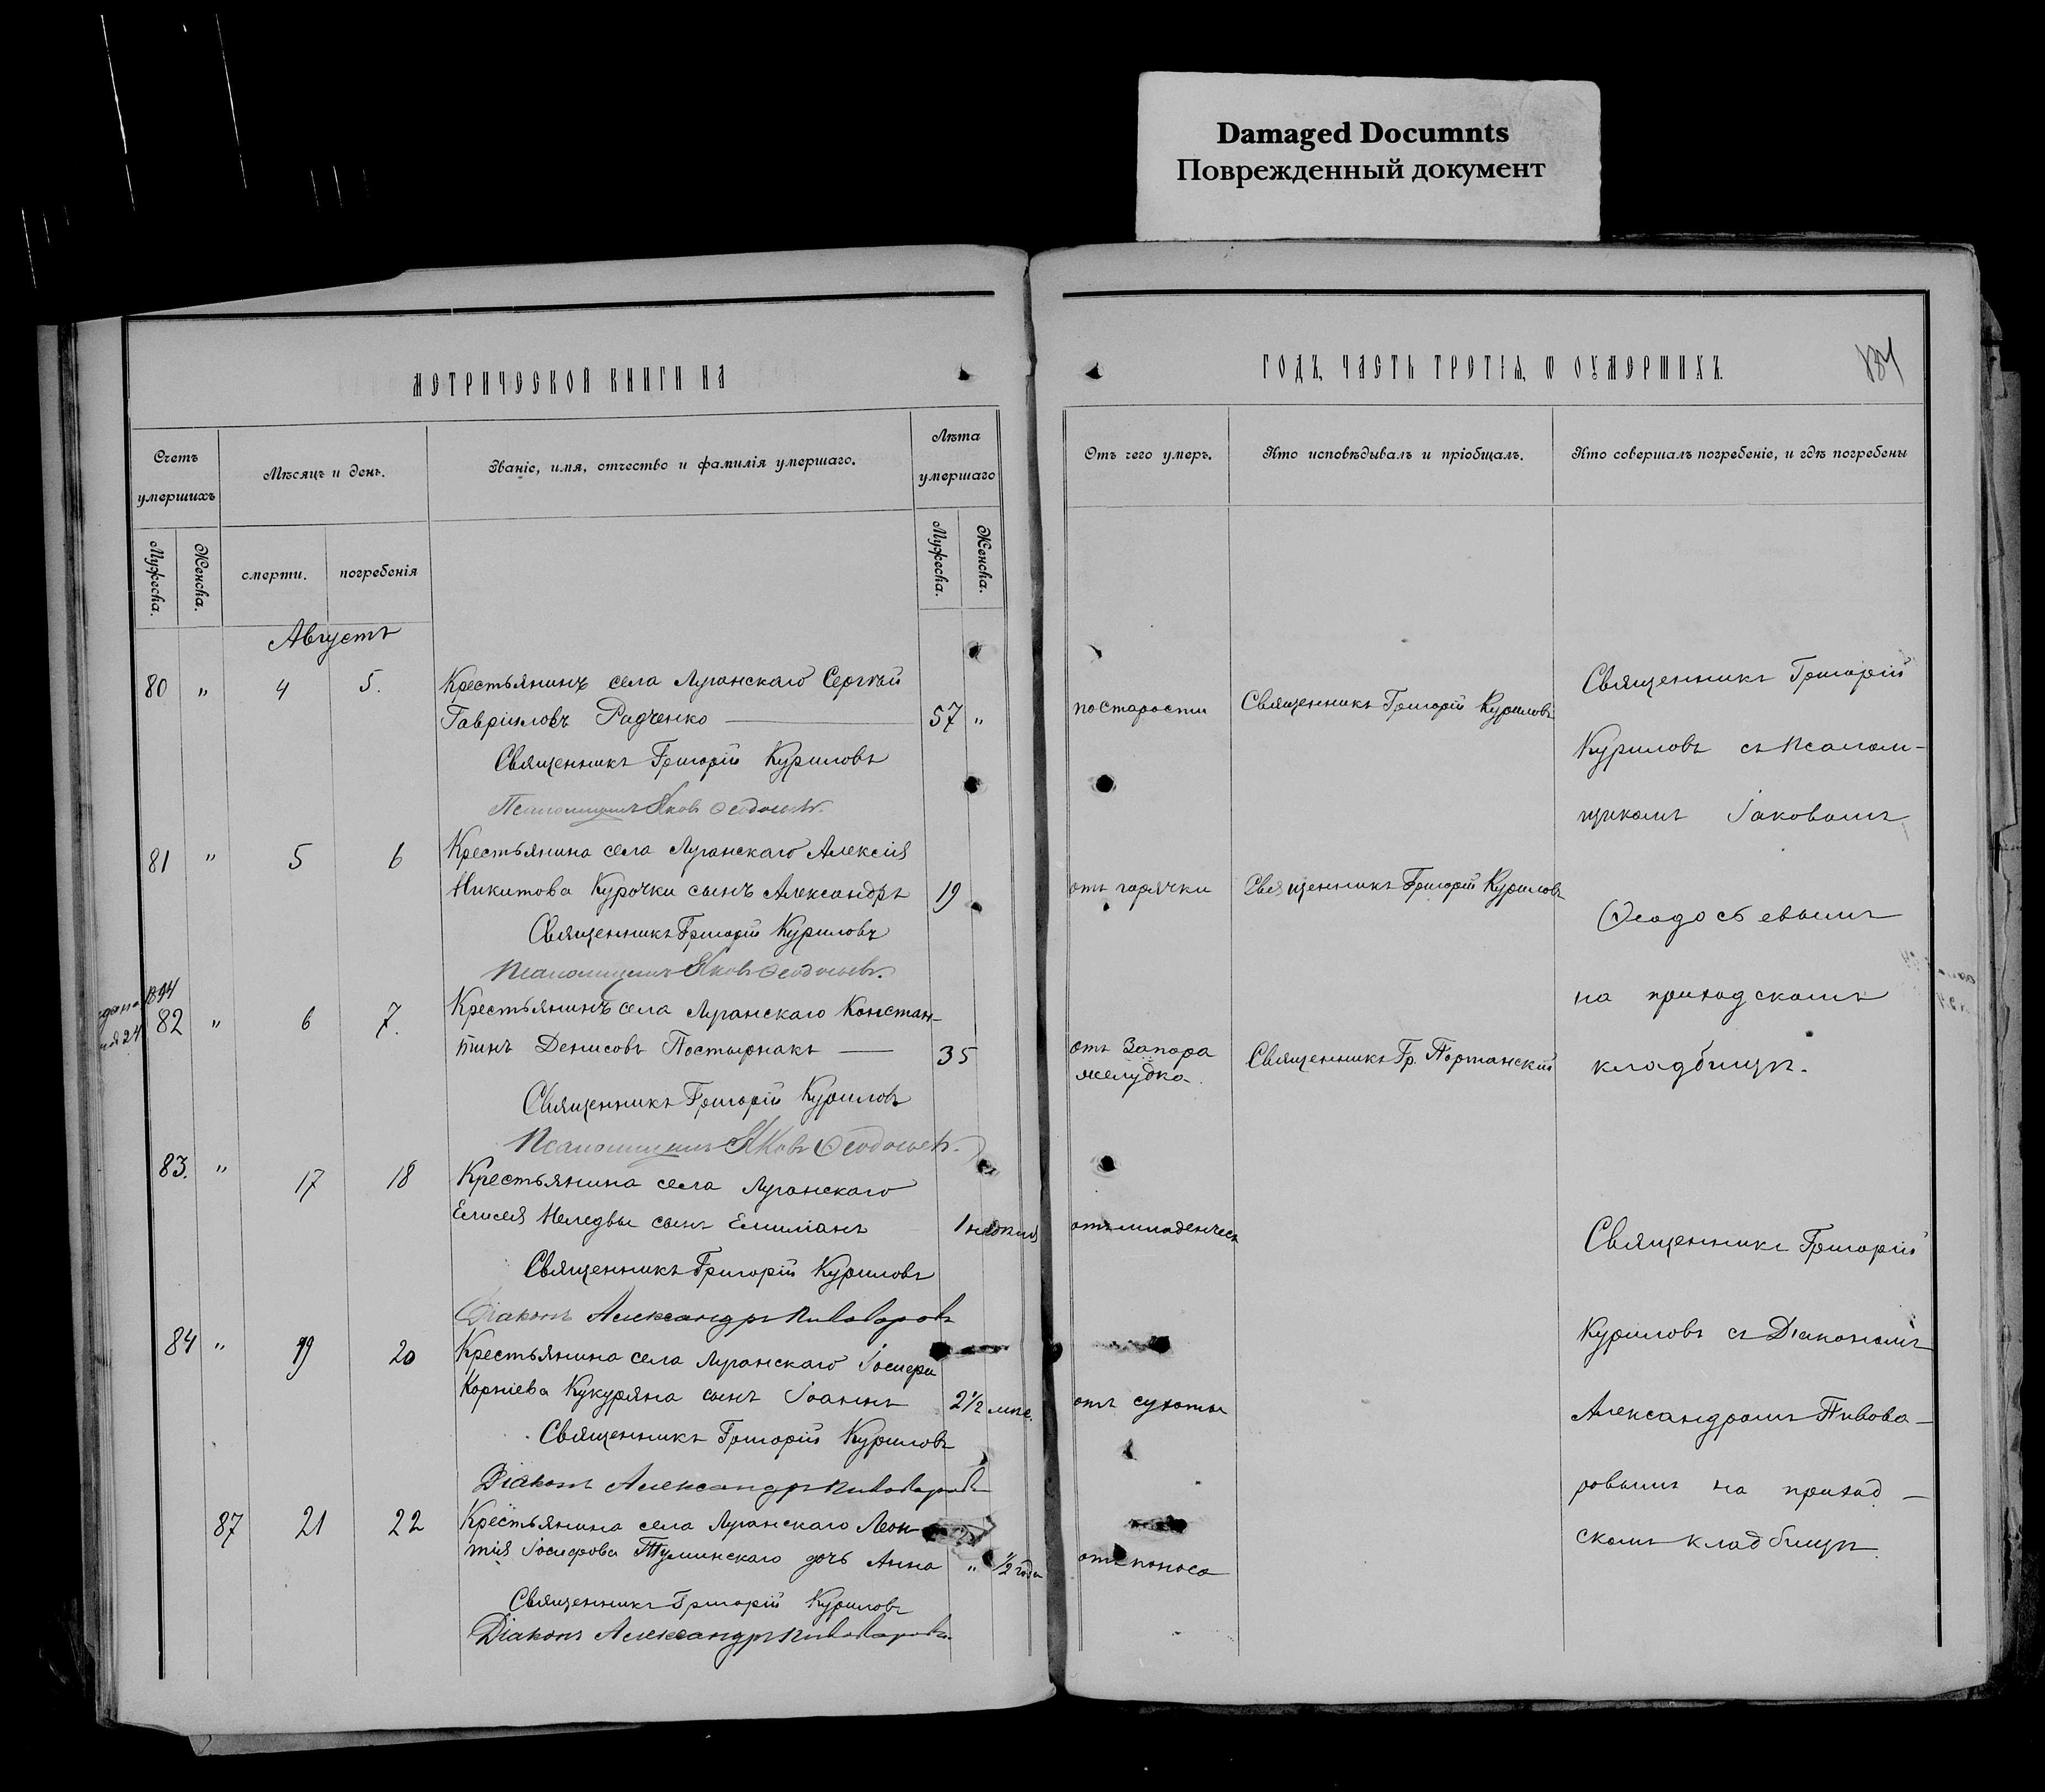 Damaged Documnts
Поврежденный документ
МЕТРИЧЕСКОЙ КНИГИ НА
Счетъ умершихъ
Мѣсяцъ и день.
Званіе, имя, отчество и фамилія умершаго.
Лѣта умершаго
Мужеска.
Женска.
смерти.
погребенія
Мужеска.
Женска.
Августъ
80 " 4 5. Крестьянинъ села Луганскаго Сергѣй
Гавріиловъ Радченко 57 "
Священникъ Григорій Куриловъ
Псаломщикъ Яковъ Ѳеодосьевъ.
81 " 5 6 Крестьянина села Луганскаго Алексія
Никитова Курочки сынъ Александръ 19
Священникъ Григорій Куриловъ
Псаломщикъ Яковъ Ѳеодосьевъ.
1894
82 " 6 7. Крестьянинъ села Луганскаго Констан-
тинъ Денисовъ Постырнакъ 35
Священникъ Григорій Куриловъ
Псаломщикъ Яковъ Ѳеодосьевъ.
83. " 17 18 Крестьянина села Луганскаго
Елисея Меледвы сынъ Емиліанъ 1 недѣля
Священникъ Григорій Куриловъ
Діаконъ Александръ Пивоваровъ
84 " 19 20 Крестьянина села Луганскаго Іосифа
Корніева Кукуряна сынъ Іоаннъ 2½ мѣс.
Священникъ Григорій Куриловъ
Діаконъ Александръ Пивоваровъ
87 21 22 Крестьянина села Луганскаго Леон-
тія Іосифова Туминскаго дочь Анна " ½ года
Священникъ Григорій Куриловъ
Діаконъ Александръ Пивоваровъ.
ГОДЪ, ЧАСТЬ ТРЕТІѦ, Ѿ ОУМЕРШИХЪ.
Отъ чего умеръ.
Кто исповѣдывалъ и пріобщалъ.
Кто совершалъ погребеніе, и гдѣ погребены
по старости Священникъ Григорій Куриловъ
отъ горячки Священникъ Григорій Куриловъ
отъ запора
желудка. Священникъ Гр.
отъ младенческ
отъ сухоты
отъ поноса
Священникъ Григорій
Куриловъ съ псалом-
щикомъ Іаковомъ
Ѳеодосьевымъ
на приходскомъ
кладбищѣ.
Священникъ Григорій
Куриловъ съ Діакономъ
Александромъ Пивова-
ровымъ на приход-
скомъ кладбищѣ.